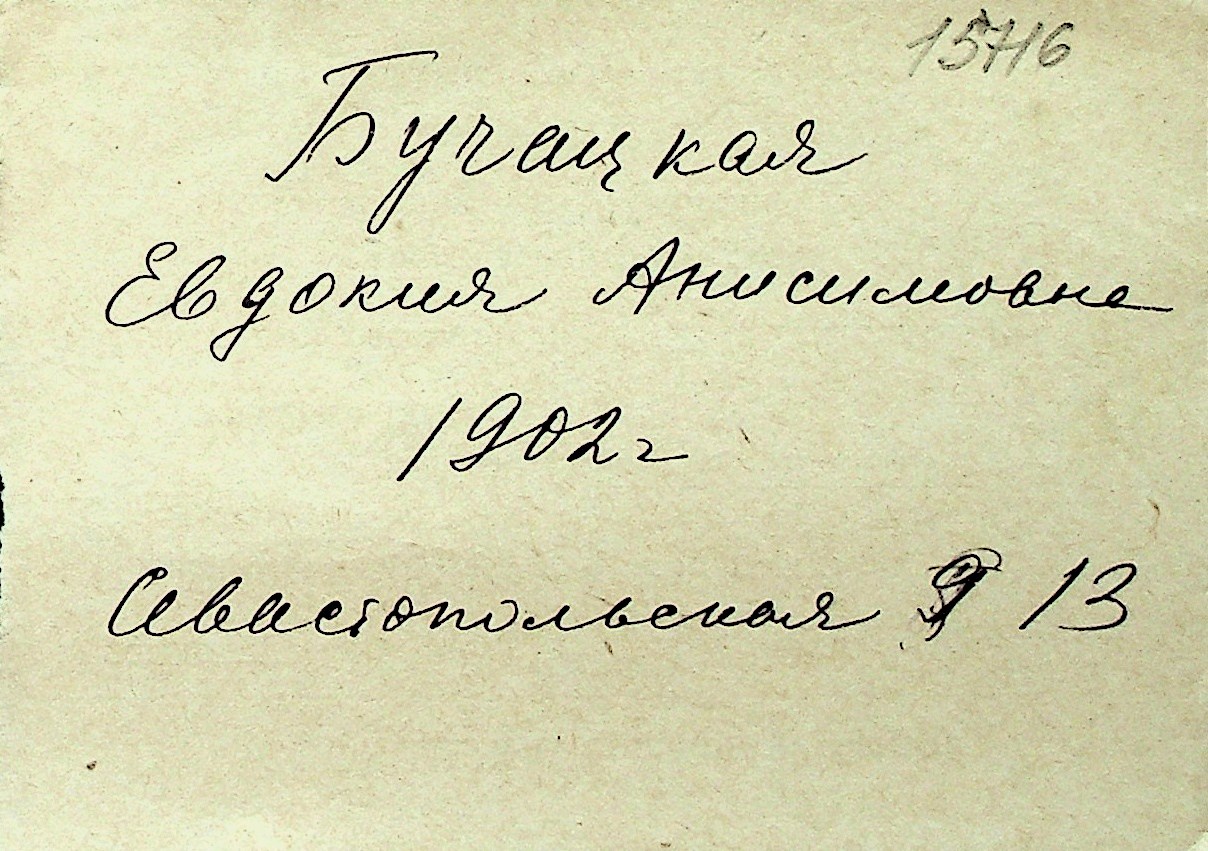 15716
Бучацкая
Евдокия Анисимовна
1902 г
Севастопольская 13